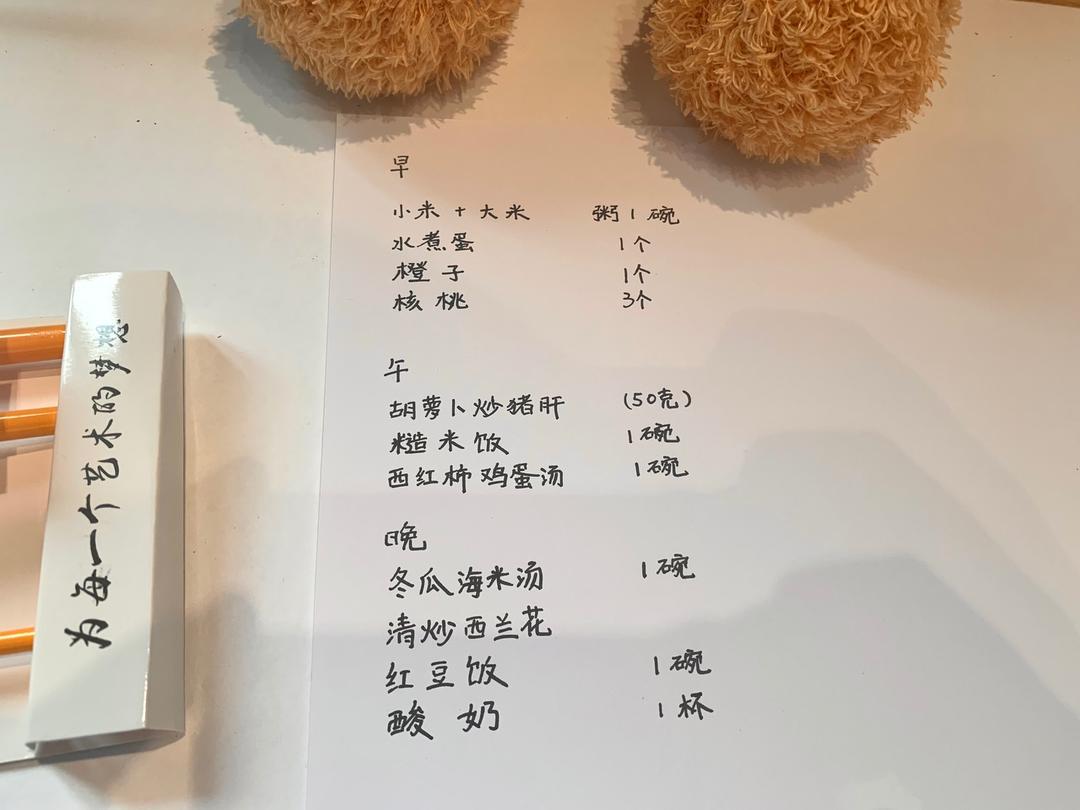 早
小米 + 大米 粥 1 碗
水煮蛋 1个
橙子 1个
核桃 3个
午
胡萝卜炒猪肝 (50克)
糙米饭 1碗
西红柿鸡蛋汤 1碗
晚
冬瓜海米汤 1碗
清炒西兰花
红豆饭 1碗
酸奶 1杯
为每一个艺术的梦想